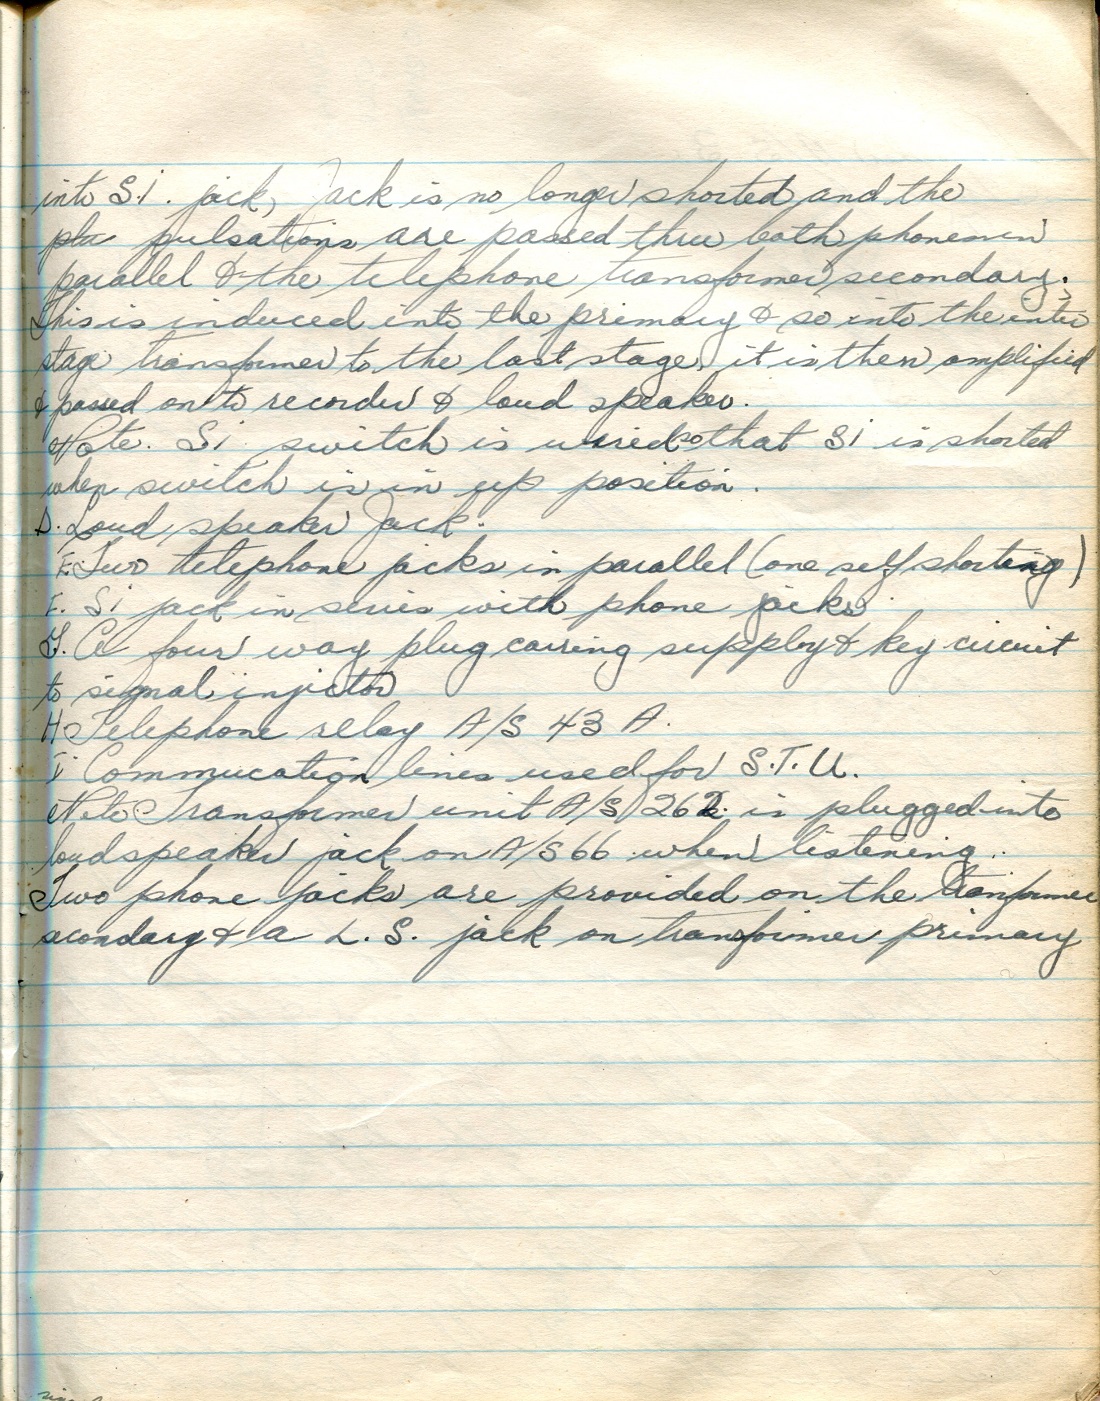 into S.i. jack, Jack is no longer shorted and the
pulsations are passed thru both phones in
parallel & the telephone transformer secondary.
This is induced into the primary & so into the inter
stage transformer to the last stage, it is then amplified
& passed on to recorder & loud speaker.
Note. Si switch is wired so that Si is shorted
when switch is in up position.
D. Loud speaker Jack.
E. Two telephone jacks in parallel (one self shorting)
F. Si jack in series with phone jacks.
G. A four way plug carring supply & key circuit
to signal injector
H Telephone relay A/S 43 A.
I Commucation lines used for S.T.U.
Note Transformer unit A/S 262 is plugged into
loudspeaker jack on A/S 66 when listening.
Two phone jacks are provided on the tranformer
secondary & a L.S. jack on transformer primary